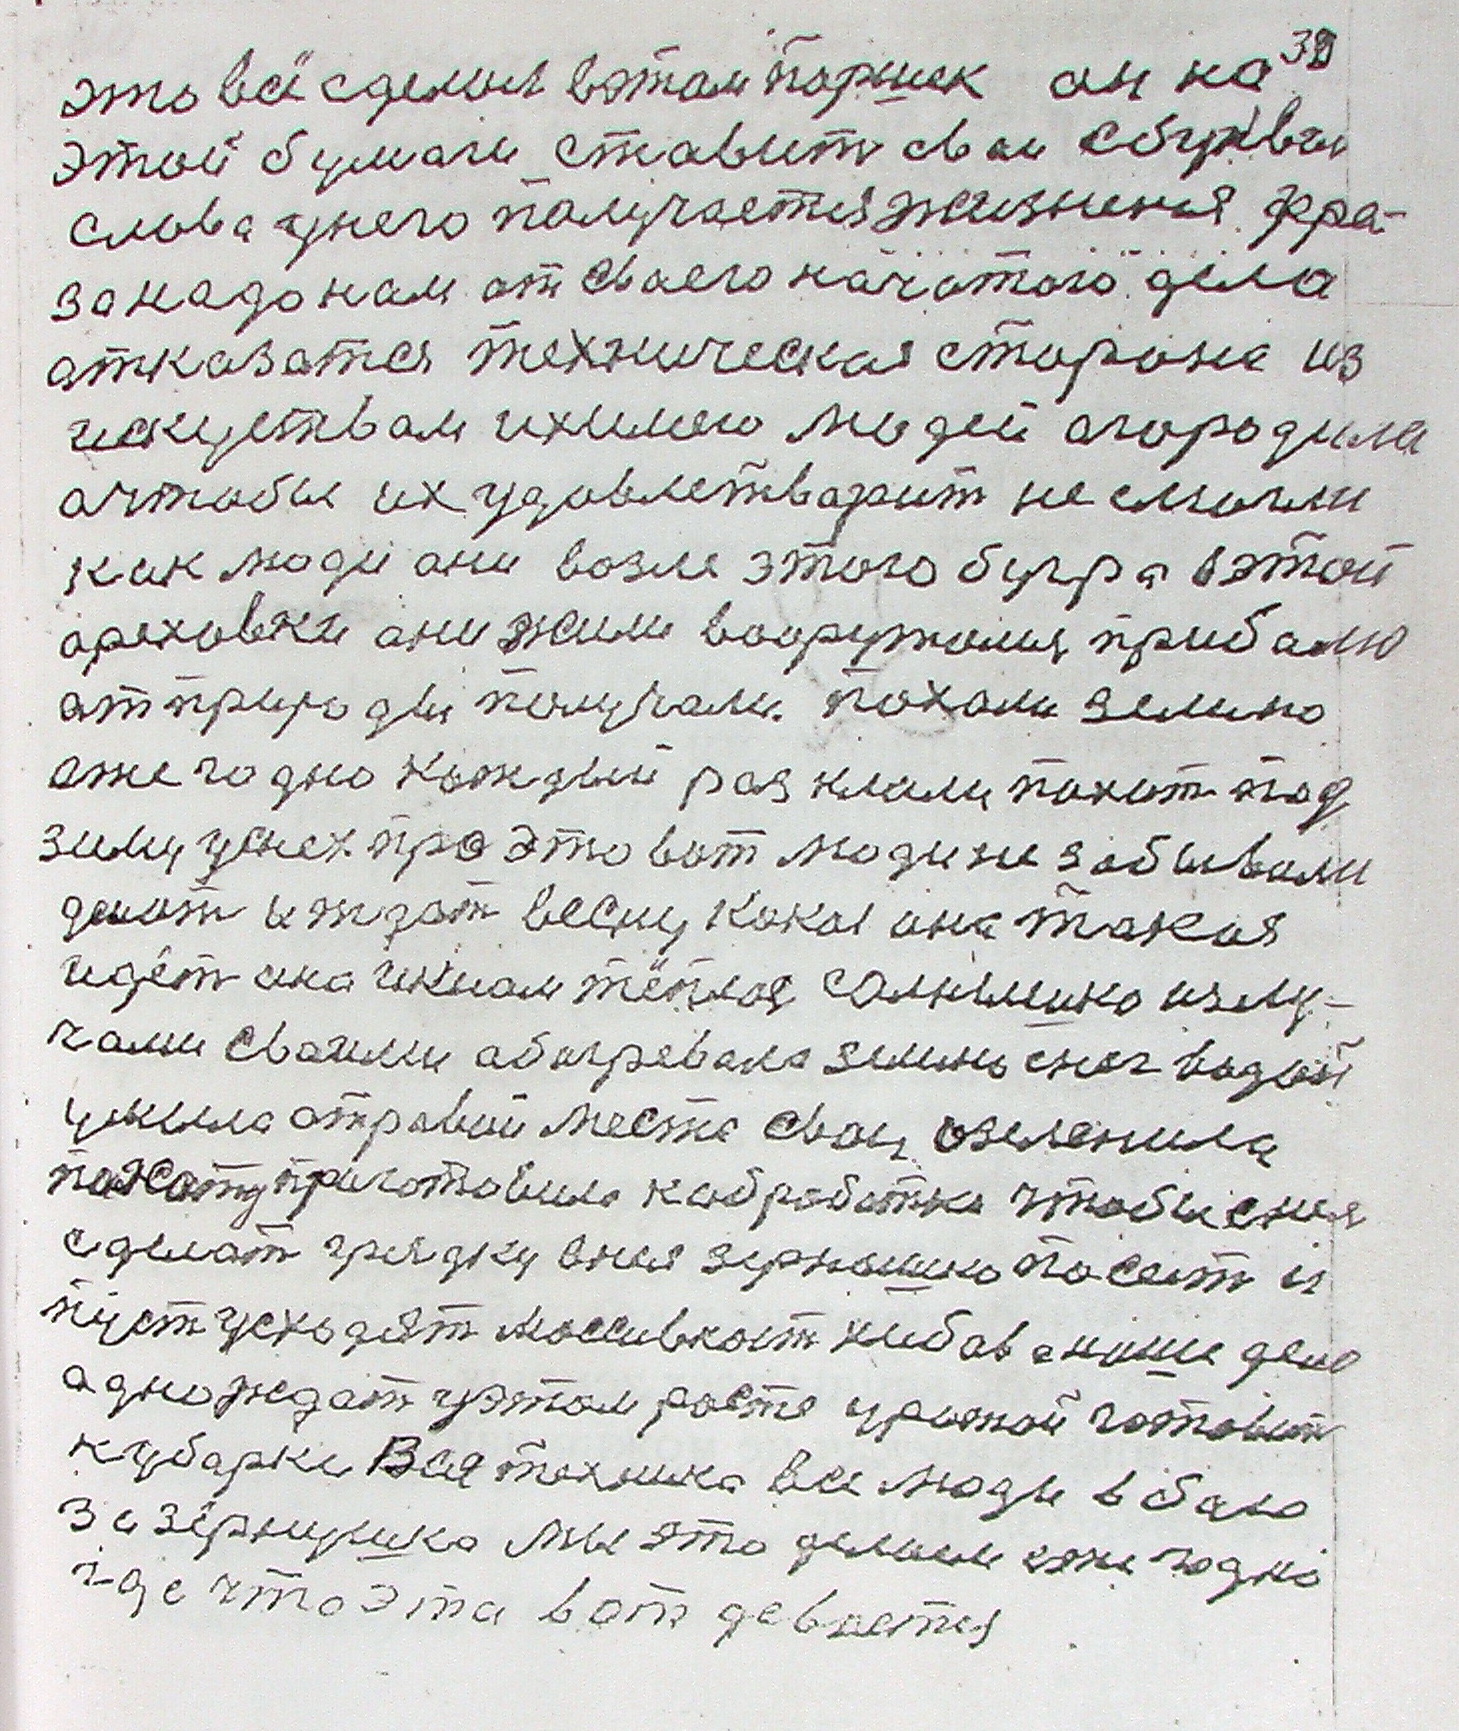 39
это всё сделол вэтом Поршек он на
этой бумаги ставит сваи
слова унего получаетия жизненая фра-
за надо нам от сваего начатого дела
атказатся техническая сторона из
искуствам ихимею людей агородила
ачтобы их удовлетварит не смогли
как люди ани возле этого бугра вэтой
ореховки ани жили вооружалися прибалю
атприроды получали. похали землю
ежегодно каждый раз клали пахот под
зиму уснех про это вот люди не забывали
делоют иждат весну какая она такая
идёт она икнам тёплая солнышко излу-
чами сваими абогревала землю снег водой
умыла отравый места сваи озеленила
пахату приготовила кобработке чтобы снея
сделат грядку внея зернышко посеит и
пуст усходят массивност хлебав а наше дело
адно ждат уэтом росте урожай готовит
куборке Вся техника все люди в бою
за зёрнушко мы это делаем ежегодно
где что эта вот деваетия